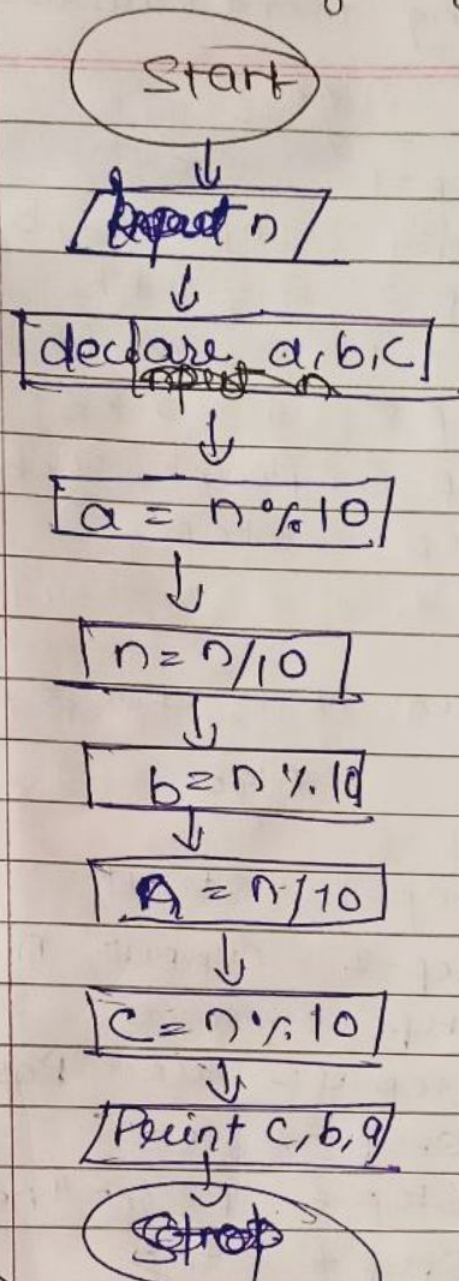 Start
Input n
declare a,b,c
input n
a = n % 10
n = n/10
b = n % 10
n = n/10
c = n % 10
Print c,b,a
Stop